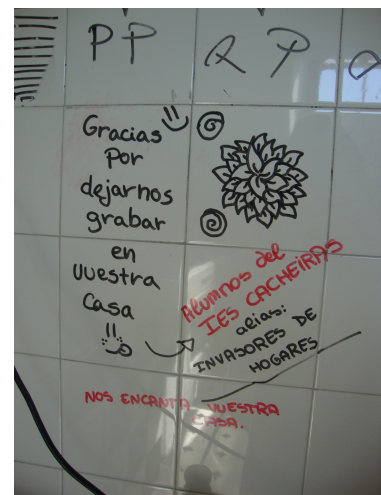 PP
Gracias
por
dejarnos
grabar
en
vuestra
Casa
Alumnos del
IES CACHEIRAS
alias:
INVASORES DE
HOGARES
NOS ENCANTA VUESTRA
CASA.